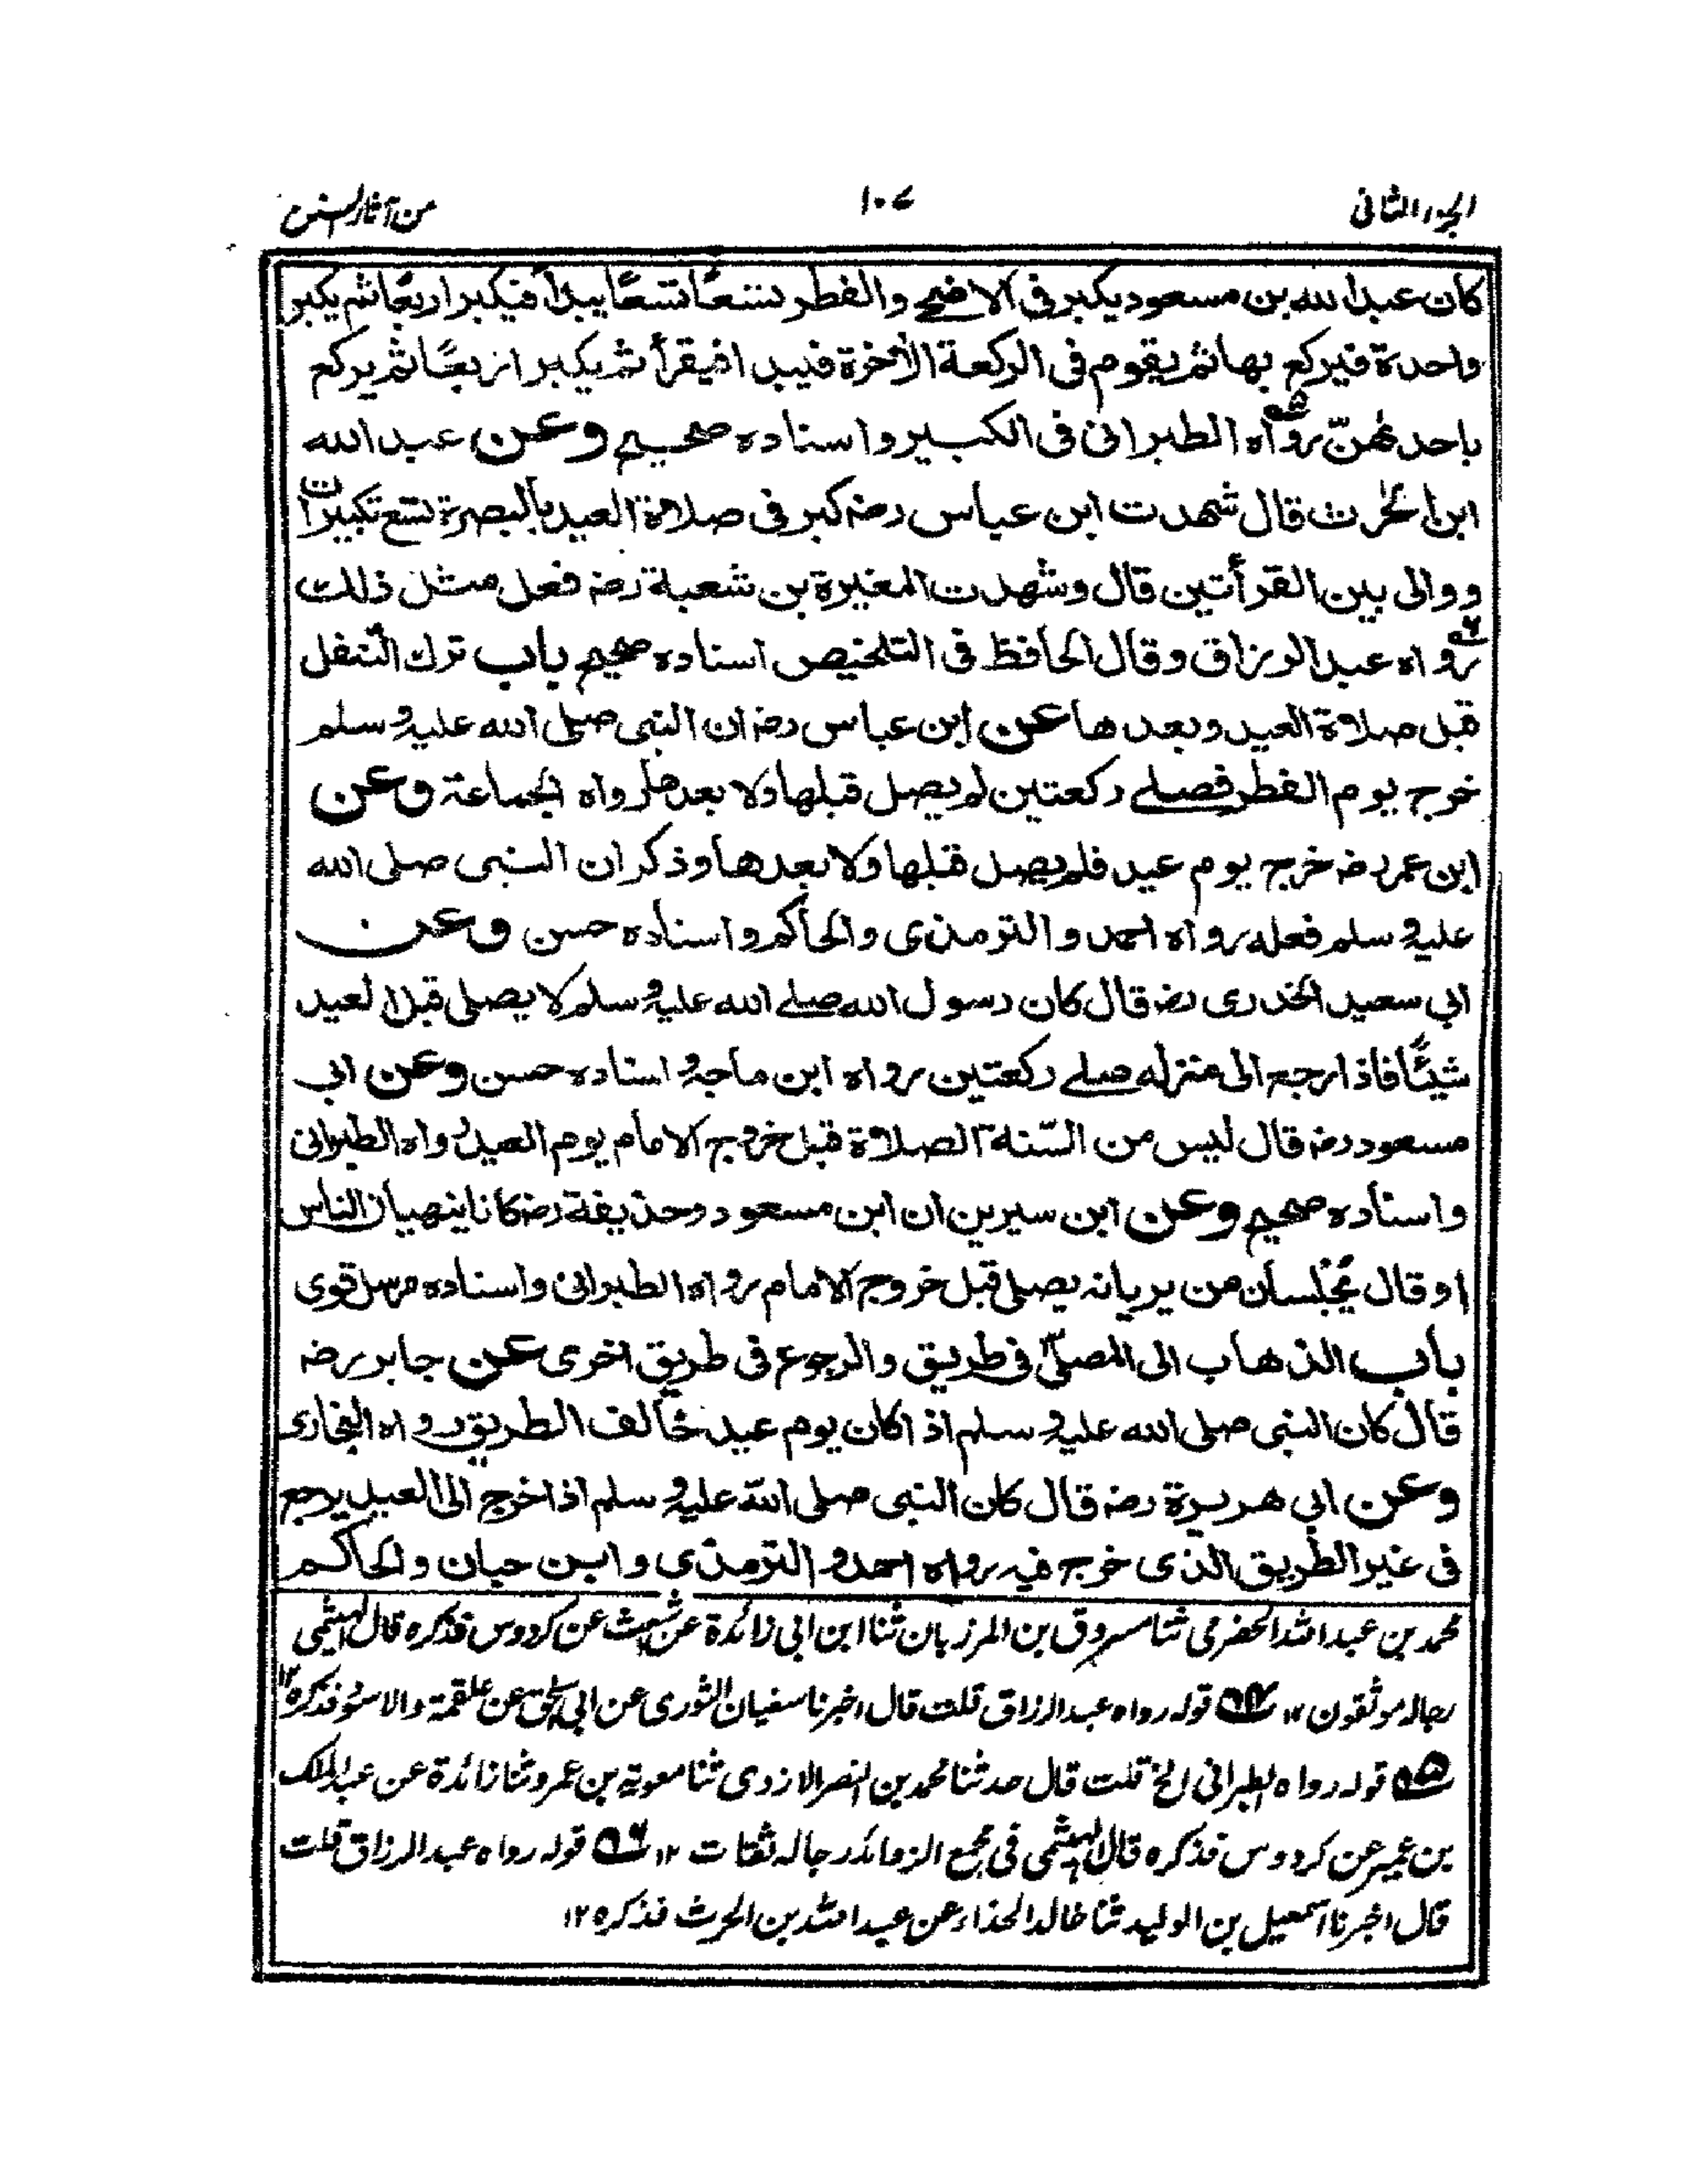 الجزء الثانی
١٠٧
من آثار السنن
كان عبد الله بن مسعود يكبر فى الاضحے والفطر تسعًا تسعًا يبدأ فيكبر اربعًا ثم يكبر
واحدة فيركع بها ثم يقوم فى الركعة الاٰخرة فيبدا فيقرأ ثم يكبر اربعًا ثم يركع
باحدٰهنّ رواه الطبرانى فى الكبير واسناده صحيح وعن عبد الله
ابن الحٰرث قال شهدت ابن عباس رضہ كبر فى صلاة العيد بالبصرة تسع تكبيرات
ووالى بين القرأتين قال وشهدت المغيرة بن شعبة رضہ فعل مثل ذلك
رواه عبد الرزاق وقال الحافظ فى التلخيص اسناده صحيح باب ترك التنفل
قبل صلاة العيد وبعدها عن ابن عباس رضہ ان النبى صلى الله عليه وسلم
خرج يوم الفطر فصلے ركعتين لم يصل قبلها ولا بعدها رواه الجماعة وعن
ابن عمر رضہ خرج يوم عيد فلم يصل قبلها ولا بعدها وذكر ان النبى صلى الله
عليه وسلم فعله رواه احمد والترمذى والحاكم واسناده حسن وعن
ابى سعيد الخدرى رضہ قال كان رسول الله صلے الله عليه وسلم لا يصلى قبل العيد
شيئًا فاذا رجع الى منزله صلے ركعتين رواه ابن ماجة واسناده حسن وعن ابى
مسعود رضہ قال ليس من السّنة الصلاة قبل خروج الامام يوم العيد رواه الطبرانى
واسناده صحيح وعن ابن سيرين ان ابن مسعود وحذيفة رضہ كانا ينهيان الناس
او قال يُجْلسان من يريانه يصلى قبل خروج الامام رواه الطبرانى واسناده مرسل قوى
باب الذهاب الى المصلىّ فى طريق والرجوع فى طريق اخرى عن جابر رضہ
قال كان النبى صلى الله عليه وسلم اذا كان يوم عيد خالف الطريق رواه البخارى
وعن ابى هريرة رضہ قال كان النبى صلى الله عليه وسلم اذا خرج الى العيد يرجع
فى غير الطريق الذى خرج فيه رواه احمد والترمذى وابن حبان والحاكم
محمد بن عبد الله الحضرمی ثنا مسروق بن المرزبان ثنا ابن ابی زائدة عن اشعث عن كردوس فذكره قال الہیثمی
رجالہ موثقون ١٢ قولہ رواه عبد الرزاق قلت قال اخبرنا سفيان الثوری عن ابی اسحٰق عن علقمة والاسود فذكره ١٢
۵ قولہ رواه الطبرانی الخ قلت قال حدثنا محمد بن النضر الازدی ثنا معویة بن عمرو ثنا زائدة عن عبد الملك
بن عمیر عن كردوس فذكره قال الہیثمی فی مجمع الزوائد رجالہ ثقات ١٢ ۶ قولہ رواه عبد الرزاق قلت
قال اخبرنا اسمعیل بن الولید ثنا خالد الحذاء عن عبد الله بن الحرث فذكره ١٢